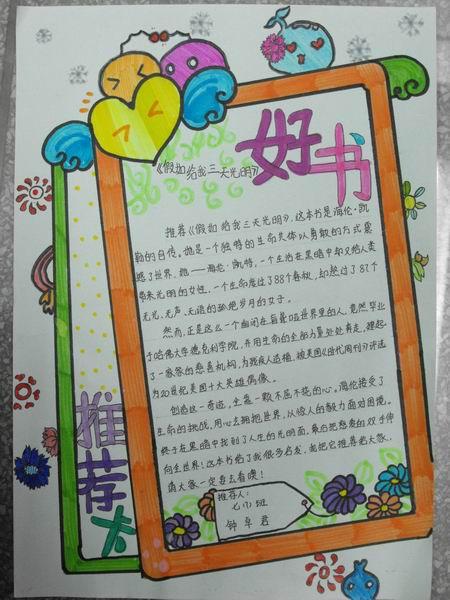 好书
《假如给我三天光明》
推荐《假如给我三天光明》,这本书是海伦·凯
勒的自传。她是一个独特的生命个体以勇敢的方式震
撼了世界,她——海伦·凯特,一个生活在黑暗中却又给人类
带来光明的女性,一个生命度过了88个春秋,却经过了87个
无光、无声、无语的孤绝岁月的女子。
然而,正是这么一个幽闭在盲聋哑世界里的人,竟然毕业
于哈佛大学德克利学院,并用生命的全部力量处处奔走,建起
了一家家的慈善机构,为残疾人造福,被美国《时代周刊》评选
为20世纪美国十大英雄偶像。
创造这一奇迹,全靠一颗不屈不挠的心。海伦接受了
生命的挑战,用心去拥抱世界,以惊人的毅力面对困境,
终于在黑暗中找到了人生的光明面,最后把慈爱的双手伸
向全世界!这本书给了我很多启发,
请大家一定要去看噢!
推荐人:
七(1)班
钟卓君
推荐卡